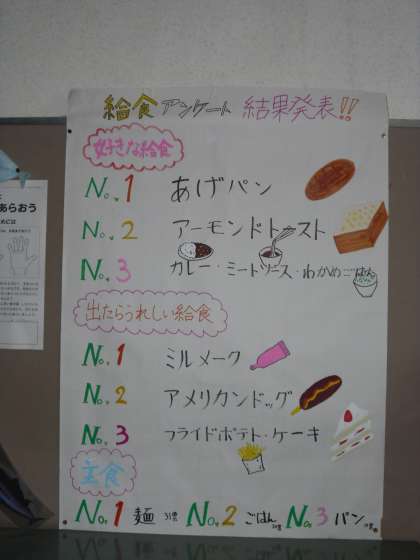 給食アンケート 結果発表!!
好きな給食
No.1 あげパン
No.2 アーモンドトースト
No.3 カレー・ミートソース・わかめごはん
出たらうれしい給食
No.1 ミルメーク
No.2 アメリカンドッグ
No.3 フライドポテト・ケーキ
主食
No.1 麺 No.2 ごはん No.3 パン
あらおう